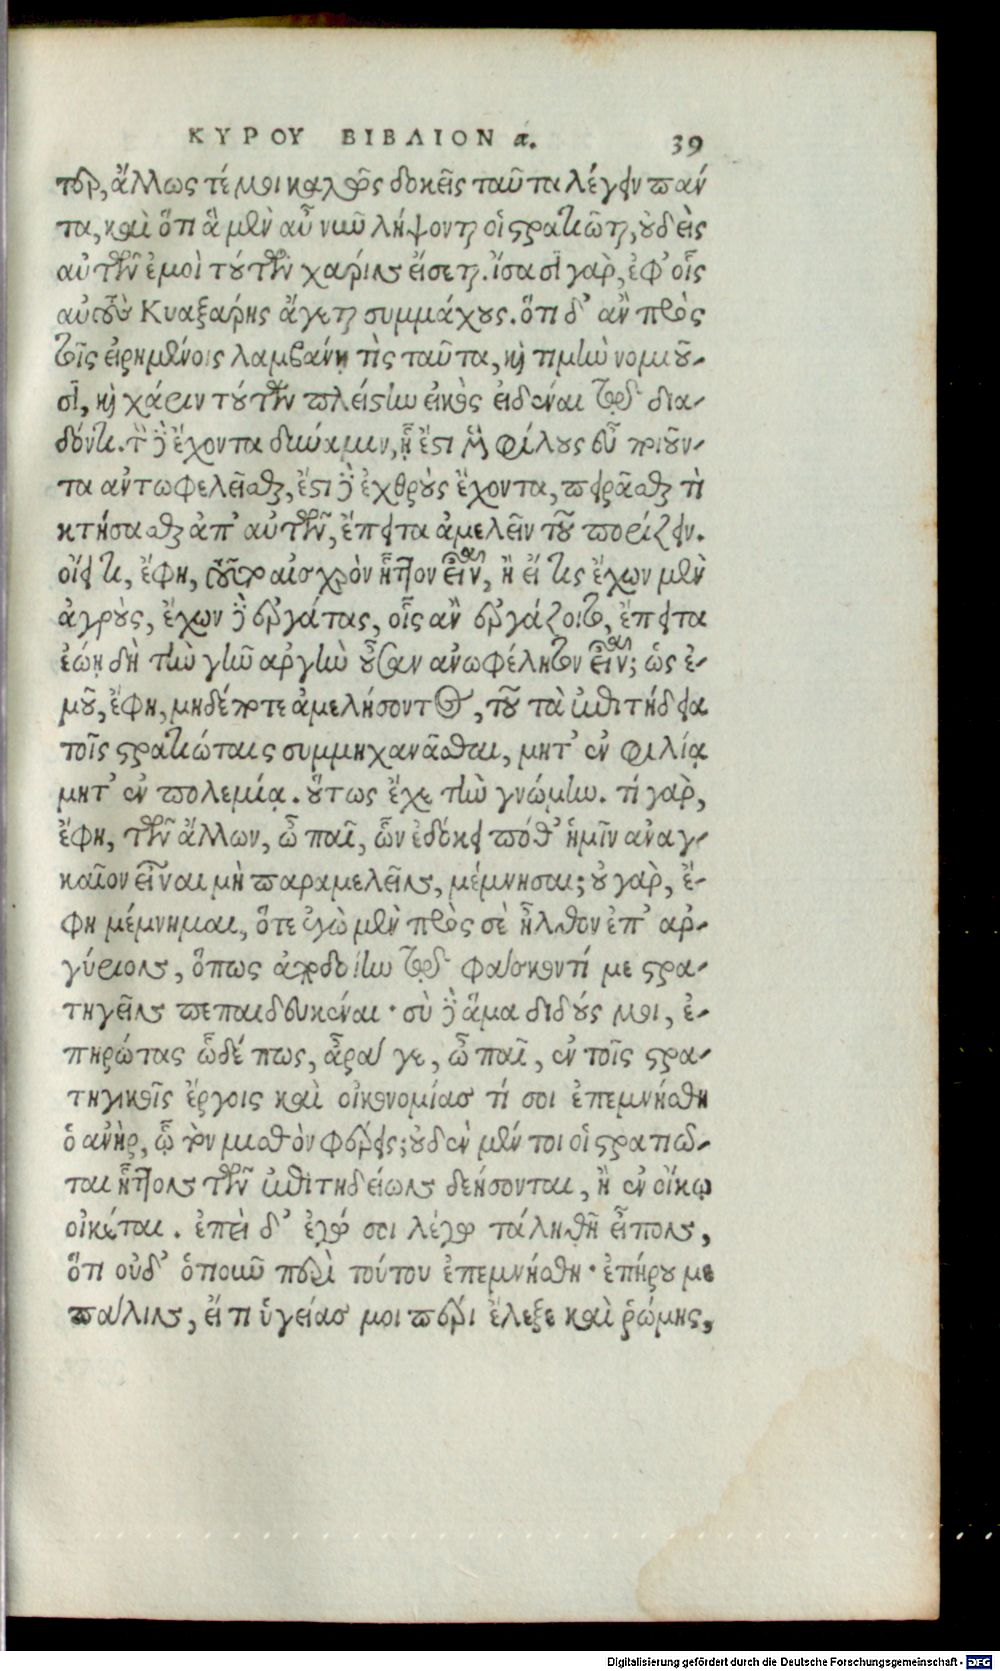 ΚΥΡΟΥ ΒΙΒΛΙΟΝ α. 39
τερ, ἄλλως τέ μοι καλῶς δοκεῖς ταῦτα λέγειν πάν
τα, καὶ ὅτι ἃ μὲν αὖ νῦν λήψονται οἱ στρατιῶται, οὐδεὶς
αὐτῶν ἐμοὶ τούτων χάριν εἴσεται. ἴσασι γὰρ, ἐφ' οἷς
αὐτοὺς Κυαξάρης ἄγεται συμμάχους. ὅτι δ' ἂν πρὸς
τοῖς εἰρημένοις λαμβάνῃ τὶς ταῦτα, καὶ τιμὴν νομιοῦ-
σι, καὶ χάριν τούτων πλείστην εἰκὸς εἰδέναι τῷ δια-
δόντι. τὸ δὲ ἔχοντα δύναμιν, ᾗ ἔστι μὲν φίλους εὖ ποιοῦν-
τα ἀντωφελεῖσθαι, ἔστι δὲ ἐχθροὺς ἔχοντα, πειρᾶσθαι τὶ
κτήσασθαι ἀπ' αὐτῶν, ἔπειτα ἀμελεῖν τοῦ πορίζειν.
οἴει τι, ἔφη, τοῦτο αἰσχρὸν ἧττον εἶναι, ἢ εἴ τις ἔχων μὲν
ἀγροὺς, ἔχων δὲ ἐργάτας, οἷς ἂν ἐργάζοιτο, ἔπειτα
ἐώη δὴ τὴν γῆν ἀργὴν οὖσαν ἀνωφέλητον εἶναι; ὡς ἐ-
μοῦ, ἔφη, μηδέποτε ἀμελήσοντος, τοῦ τὰ ἐπιτήδεια
τοῖς στρατιώταις συμμηχανᾶσθαι, μήτ' ἐν φιλίᾳ
μήτ' ἐν πολεμίᾳ. οὕτως ἔχε τὴν γνώμην. τί γὰρ,
ἔφη, τῶν ἄλλων, ὦ παῖ, ὧν ἐδόκει πόθ' ἡμῖν ἀναγ-
καῖον εἶναι μὴ παραμελεῖν, μέμνησαι; οὐ γὰρ, ἔ-
φη μέμνημαι, ὅτε ἐγὼ μὲν πρὸς σὲ ἦλθον ἐπ' ἀρ-
γύριον, ὅπως ἀποδοίην τῷ φάσκοντί με στρα-
τηγεῖν πεπαιδευκέναι· σὺ δὲ ἅμα διδούς μοι, ἐ-
πηρώτας ὧδέ πως, ἆρά γε, ὦ παῖ, ἐν τοῖς στρα-
τηγικοῖς ἔργοις καὶ οἰκονομίας τί σοι ἐπεμνήσθη
ὁ ἀνὴρ, ᾧ τὸν μισθὸν φέρεις; οὐδὲν μέν τοι οἱ στρατιῶ-
ται ἧττον τῶν ἐπιτηδείων δεήσονται, ἢ ἐν οἴκῳ
οἰκέται. ἐπεὶ δ' ἐγώ σοι λέγω τἀληθῆ εἶπον,
ὅτι οὐδ' ὁτιοῦν περὶ τούτου ἐπεμνήσθη· ἐπήρου με
πάλιν, εἴ τι ὑγείας μοι πέρι ἔλεξε καὶ ῥώμης,
Digitalisierung gefördert durch die Deutsche Forschungsgemeinschaft - DFG